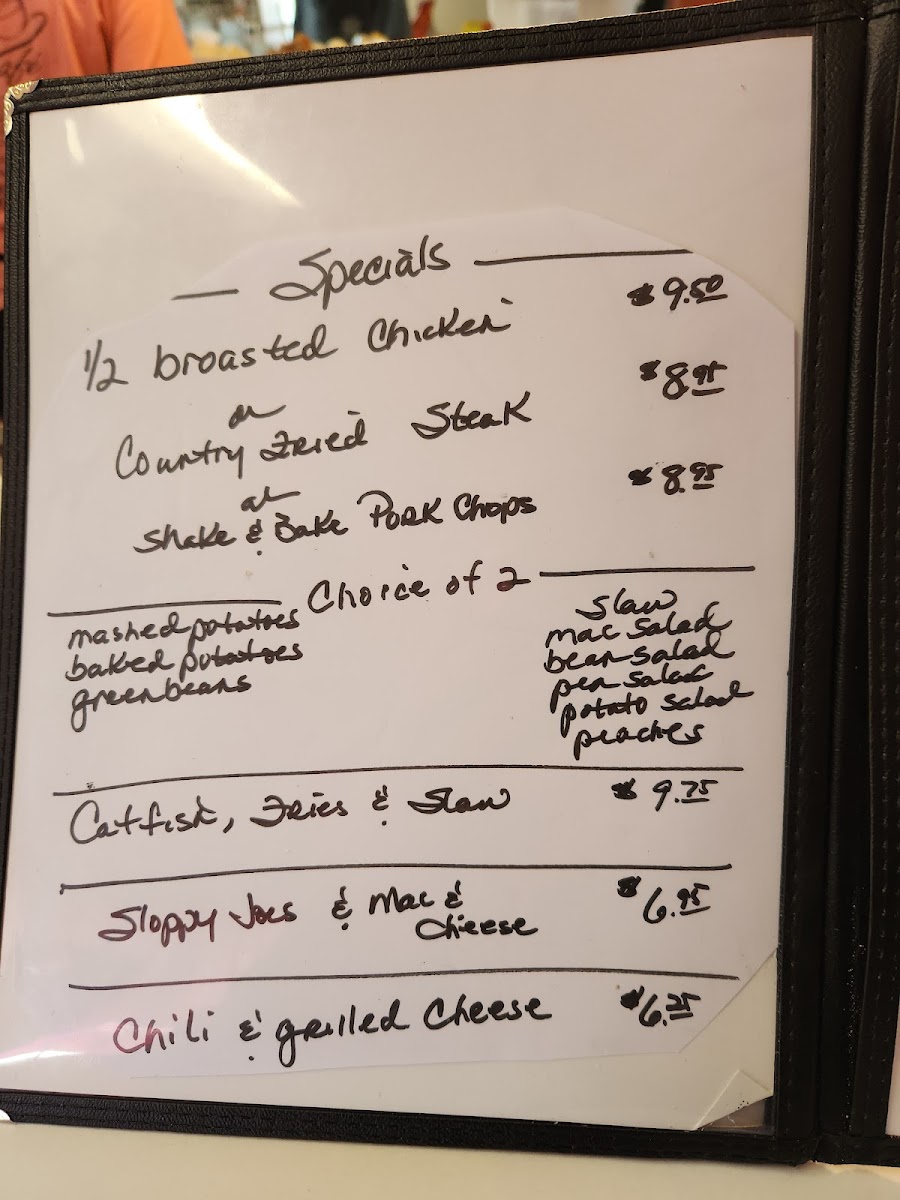 Specials
1/2 broasted Chicken $9.50
or
Country Fried Steak $8.95
or
Shake & Bake Pork Chops $8.95
Choice of 2
mashed potatoes
baked potatoes
green beans
Slaw
mac salad
bean salad
pea salad
potato salad
peaches
Catfish, Fries & Slaw $9.75
Sloppy Joes & Mac & $6.95
Cheese
Chili & grilled Cheese $6.25